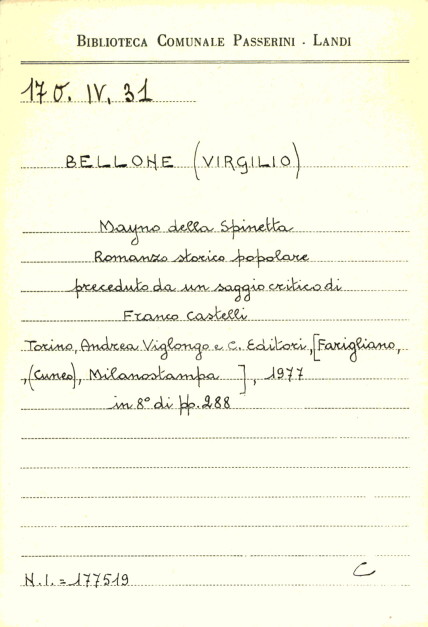 BIBLIOTECA COMUNALE PASSERINI - LANDI
17 O. IV. 31
BELLONE (VIRGILIO)
Mayno della Spinetta
Romanzo storico popolare
preceduto da un saggio critico di
Franco Castelli
Torino, Andrea Viglongo e C. Editori, [Farigliano,
,(Cuneo), Milanostampa ], 1977
in 8° di pp. 288
N.I. = 177519
C